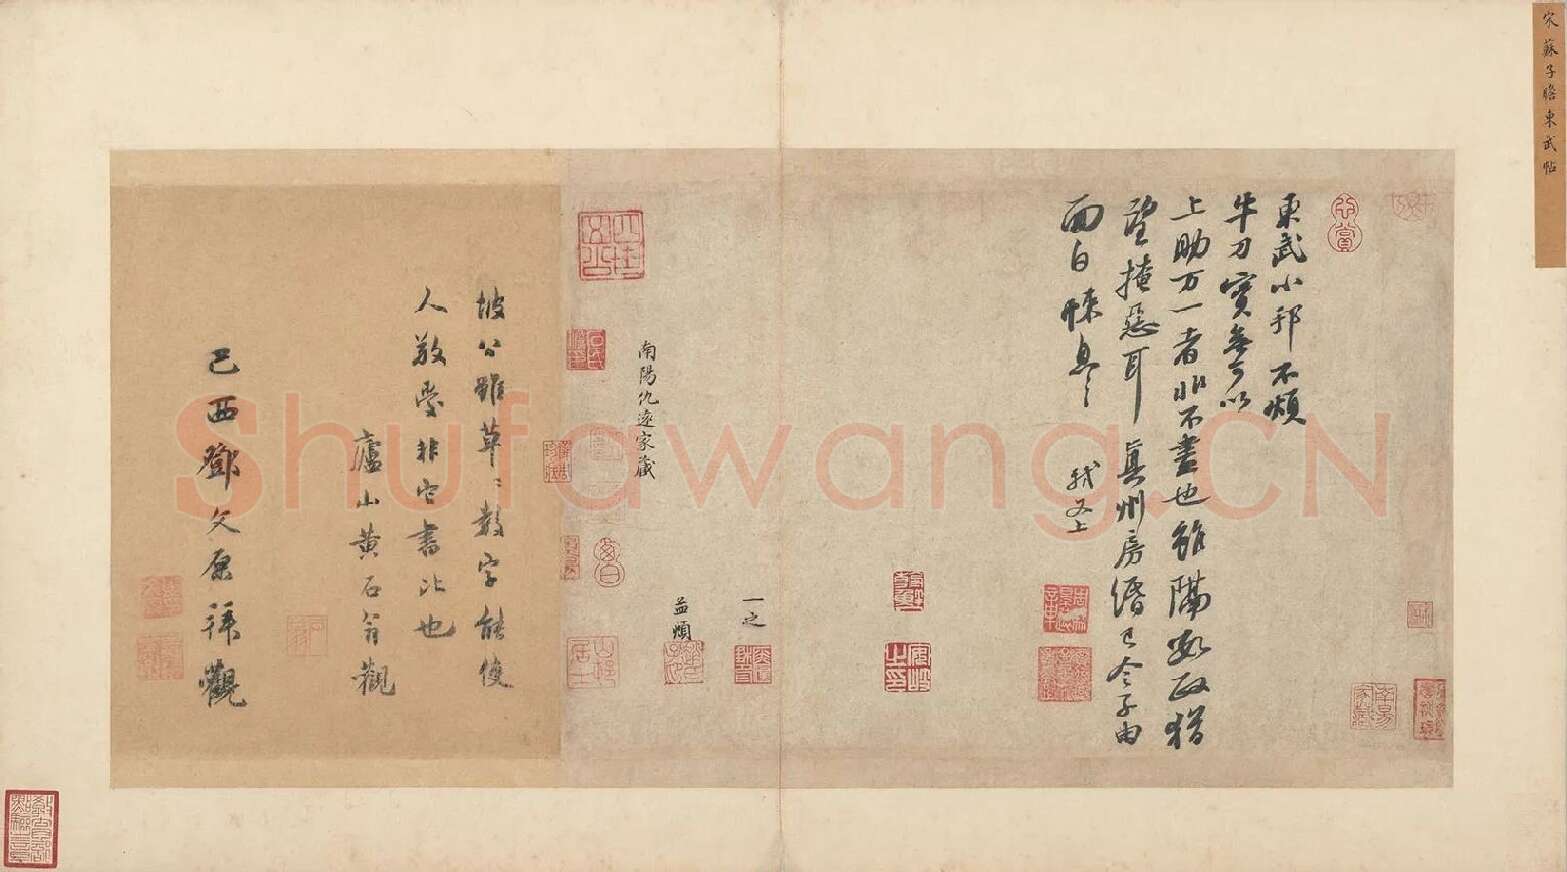 宋蘇子瞻東武帖
東武小邦不煩
牛刀實無可以
上助万一者非不盡也雖隔數政猶
望掩惡耳真州房緡已令子由
面白悚息〻 軾又上
一之
益
南陽仇遠家藏
坡公雖草〻數字能使
人敬愛非它書比也
廬山黃石翁觀
己酉鄧文原拜觀
Shufawang.CN